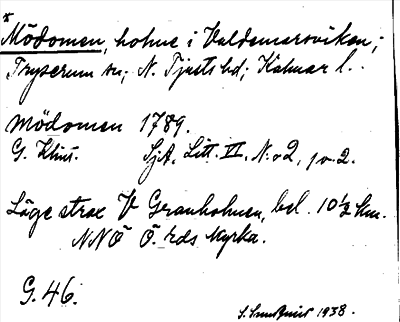 * Mödomen, holme i Valdemarsviken;
Tryserum sn; N. Tjusts hd; Kalmar l.
Mödomen 1789.
G. Klint. SjA, Litt. VI, N:o 2, p. 2.
Läge strax V Granholmen, bel. 10 1/2 km.
NNÖ Ö. Eds kyrka.
G. 46.
S. 1938.